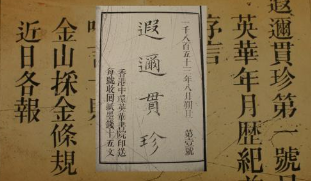 遐邇貫珍第一號
序言
英華年月歷紀
一千八百五十三年八月朔旦 第壹號
遐邇貫珍
香港中環英華書院印送
每號收回紙墨錢十五文
金山採金條規
近日各報